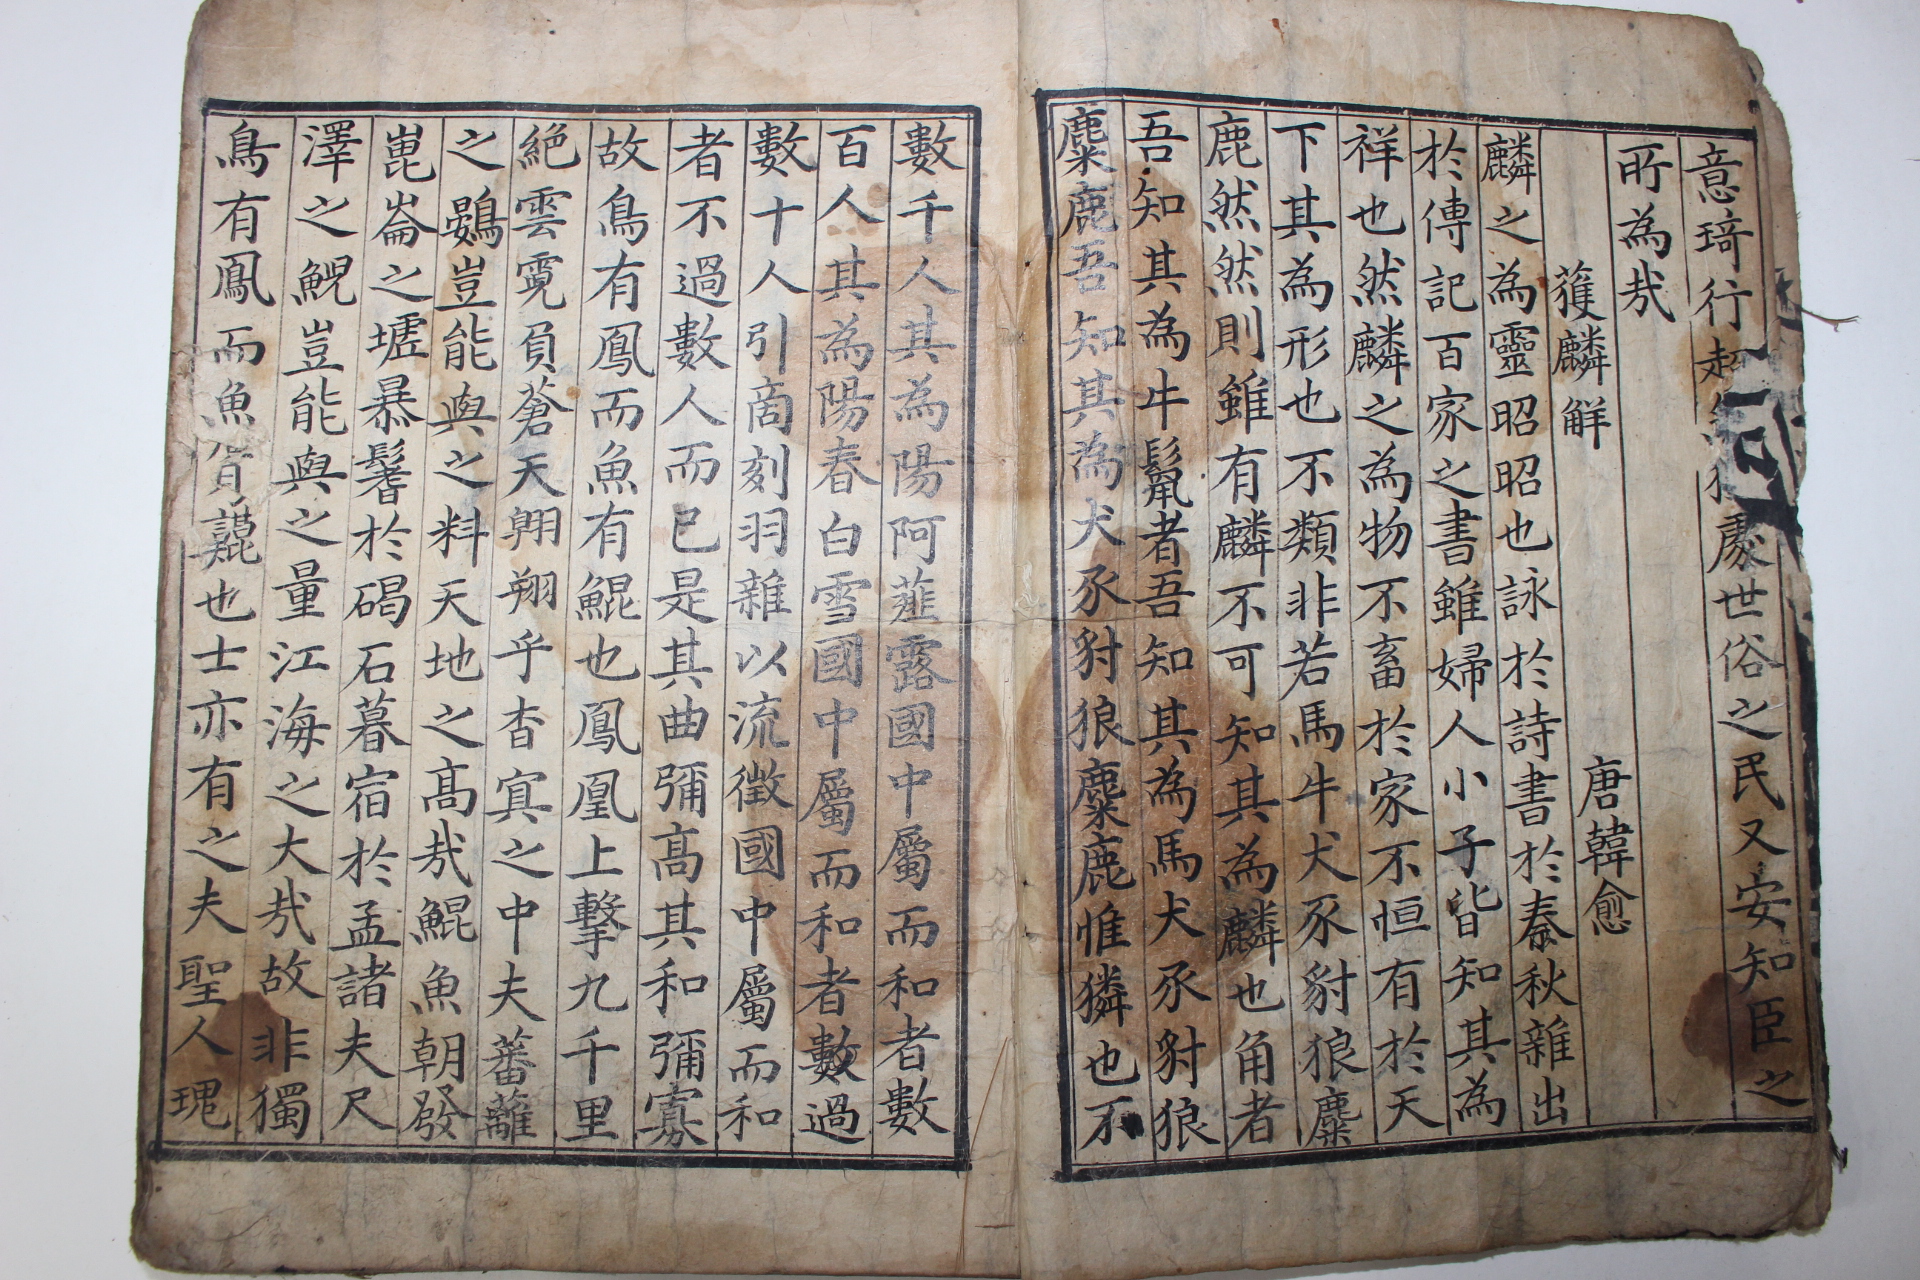 意琦行超 處世俗之民又安知臣之
所為㢤
獲麟解 唐韓愈
麟之為靈昭昭也詠於詩書於春秋雜出
於傳記百家之書雖婦人小子皆知其為
祥也然麟之為物不畜於家不恒有於天
下其為形也不類非若馬牛犬豕豺狼麋
鹿然然則雖有麟不可知其為麟也角者
吾知其為牛鬣者吾知其為馬犬豕豺狼
麋鹿吾知其為犬豕豺狼麋鹿惟獜也不
數千人其為陽阿薤露國中屬而和者數
百人其為陽春白雪國中屬而和者數過
數十人引商刻羽雜以流徵國中屬而和
者不過數人而已是其曲彌高其和彌寡
故鳥有鳳而魚有鯤也鳳凰上擊九千里
絕雲霓負蒼天翱翔乎杳㝠之中夫蕃蘺
之鷃豈能與之料天地之髙㢤鯤魚朝發
崑崙之墟暴鬐於碣石暮宿於孟諸夫尺
澤之鯢豈能與之量江海之大㢤故非獨
鳥有鳳而魚 也士亦有之夫聖人瑰